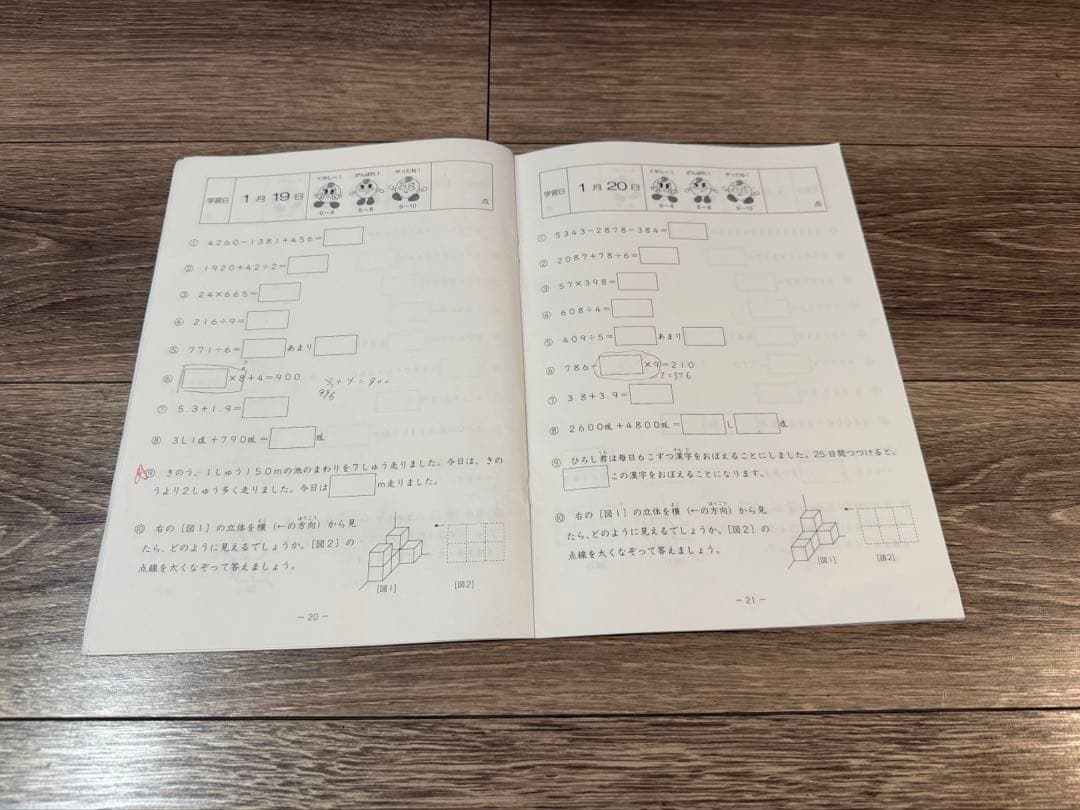 学習日
1月19日
くやし〜!
がんばれ!
やったね!
0〜4
5〜8
9〜10
点
① 4260−1381+456=
② 1920+42÷2=
③ 24×665=
④ 216÷9=
⑤ 771÷6= あまり
⑥ ×8+4=900
+4=900
896
⑦ 5.3+1.9=
⑧ 3L1dL+790mL= mL
⑨ きのう、1しゅう150mの池のまわりを7しゅう走りました。今日は、きの
うより2しゅう多く走りました。今日は m走りました。
⑩ 右の[図1]の立体を横(←の方向)から見
よこ
ほうこう
たら、どのように見えるでしょうか。[図2]の
点線を太くなぞって答えましょう。
[図1]
[図2]
−20−
学習日
1月20日
くやし〜!
がんばれ!
やったね!
0〜4
5〜8
9〜10
点
① 5343−2878−384=
② 2087+78÷6=
③ 57×398=
④ 608÷4=
⑤ 409÷5= あまり
⑥ 786− ×9=210
?=576
⑦ 3.8+3.9=
⑧ 2600mL+4800mL= L dL
⑨ ひろし君は毎日6こずつ漢字をおぼえることにしました。25日間つづけると、
くん
かんじ
この漢字をおぼえることになります。
⑩ 右の[図1]の立体を横(←の方向)から見
よこ
ほうこう
たら、どのように見えるでしょうか。[図2]の
点線を太くなぞって答えましょう。
[図1]
[図2]
−21−